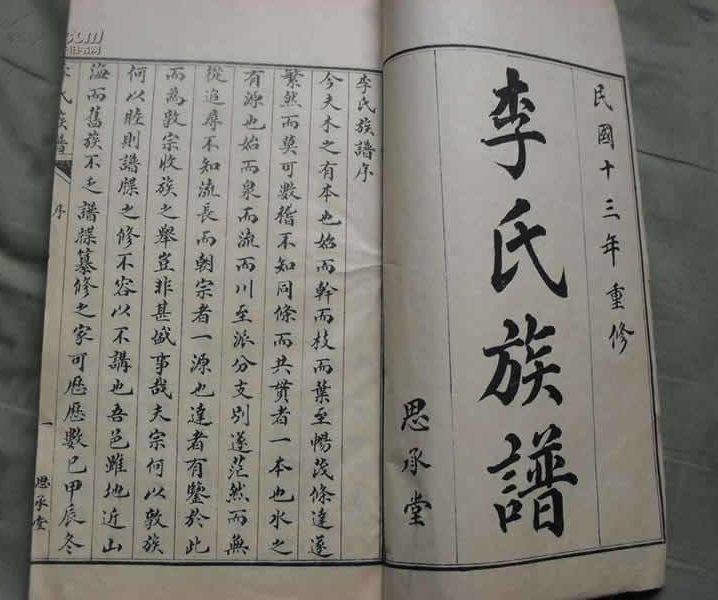 民國十三年重修
李氏族譜
思承堂
李氏族譜序
今夫木之有本也始而幹而枝而葉至暢茂條達遂
繁然而莫可數稽不知同條而共貫者一本也水之
有源也始而泉而流而川至派分支別遂茫然而無
從追尋不知流長而朝宗者一源也達者有鑒於此
而為敦宗收族之舉豈非甚晠事哉夫宗何以敦族
何以睦則譜牒之修不容以不講也吾邑雖地近山
海而舊族不乏譜牒纂修之家可歷歷數已甲辰冬
氏族譜
序
一
思承堂